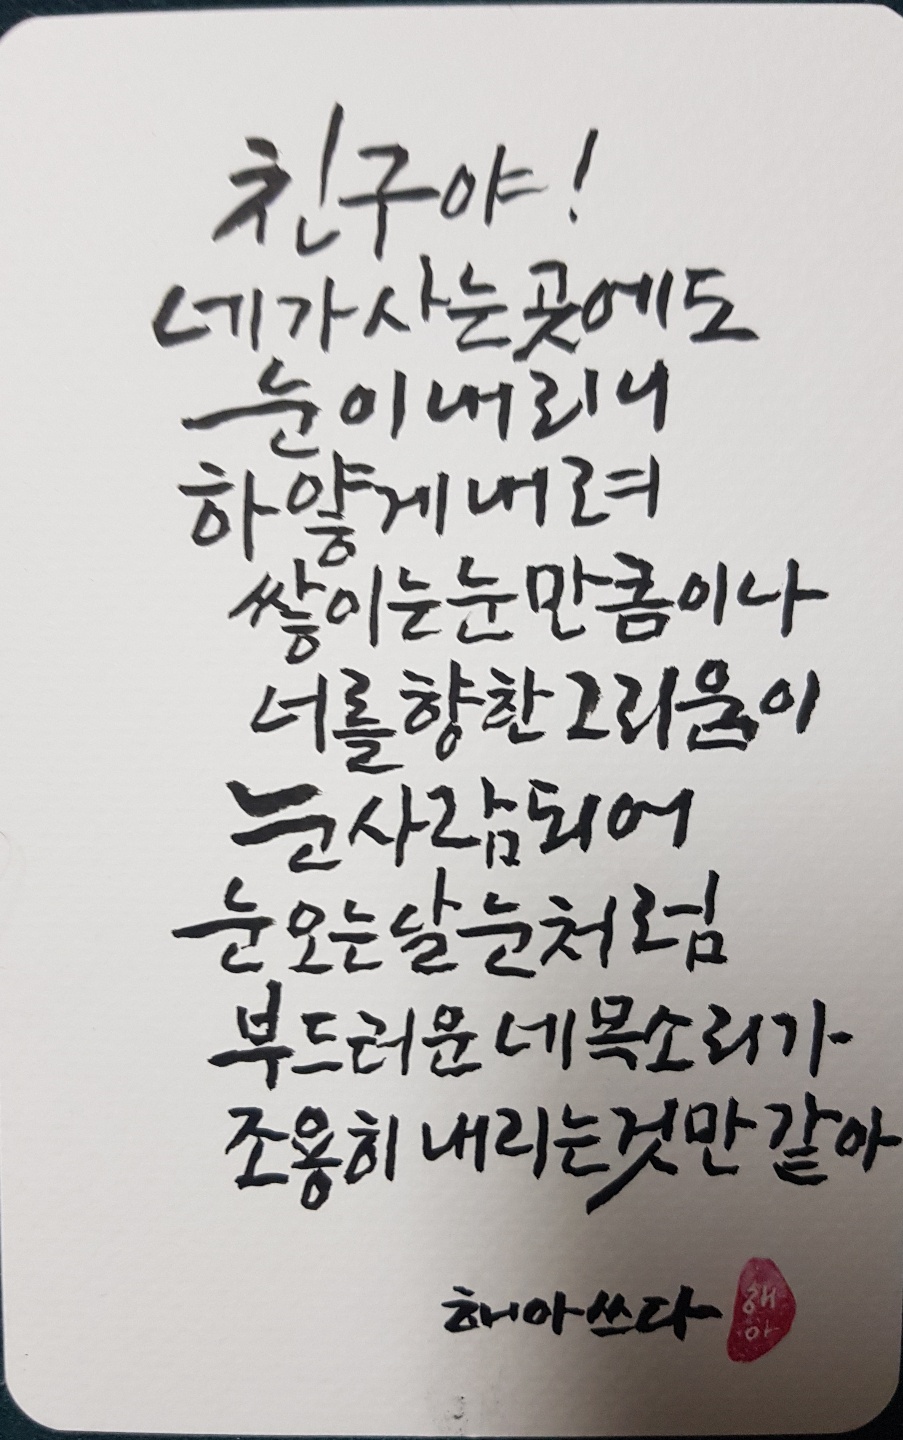 친구야!
네가 사는 곳에도
눈이 내리니
하얗게 내려
쌓이는 눈만큼이나
너를 향한 그리움이
눈사람 되어
눈 오는 날 눈처럼
부드러운 네 목소리가
조용히 내리는 것만 같아
해아 쓰다
해아